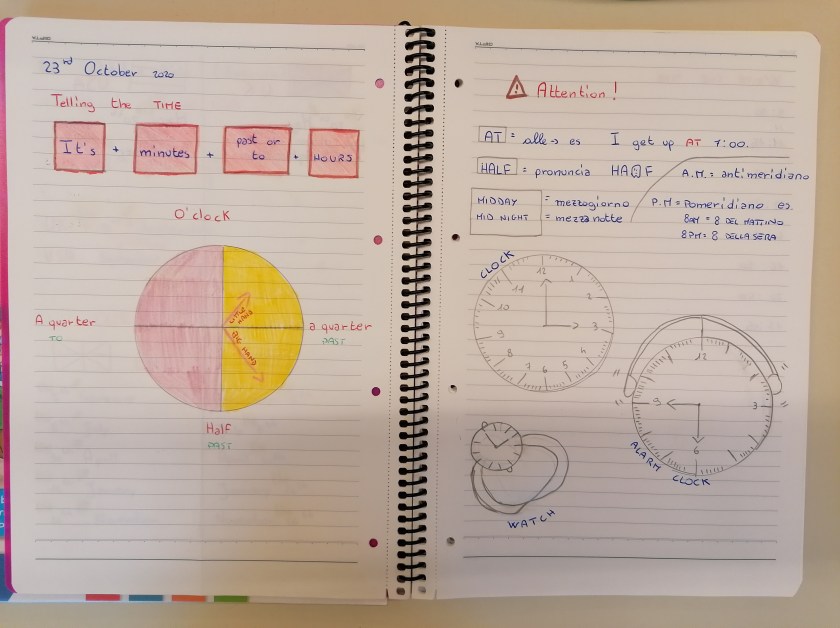 23rd October 2020
Telling the TIME
It's + minutes + past or to + HOURS
O'clock
A quarter
TO
LITTLE HAND
BIG HAND
a quarter
PAST
Half
PAST
Attention!
AT = alle → es I get up AT 7:00.
HALF = pronuncia
A.M. = antimeridiano
MIDDAY = mezzogiorno
MIDNIGHT = mezzanotte
P.M = Pomeridiano es.
8AM = 8 DEL MATTINO
8PM = 8 DELLA SERA
CLOCK
12
1
2
3
4
5
6
7
8
9
10
11
12
3
6
9
ALARM CLOCK
WATCH